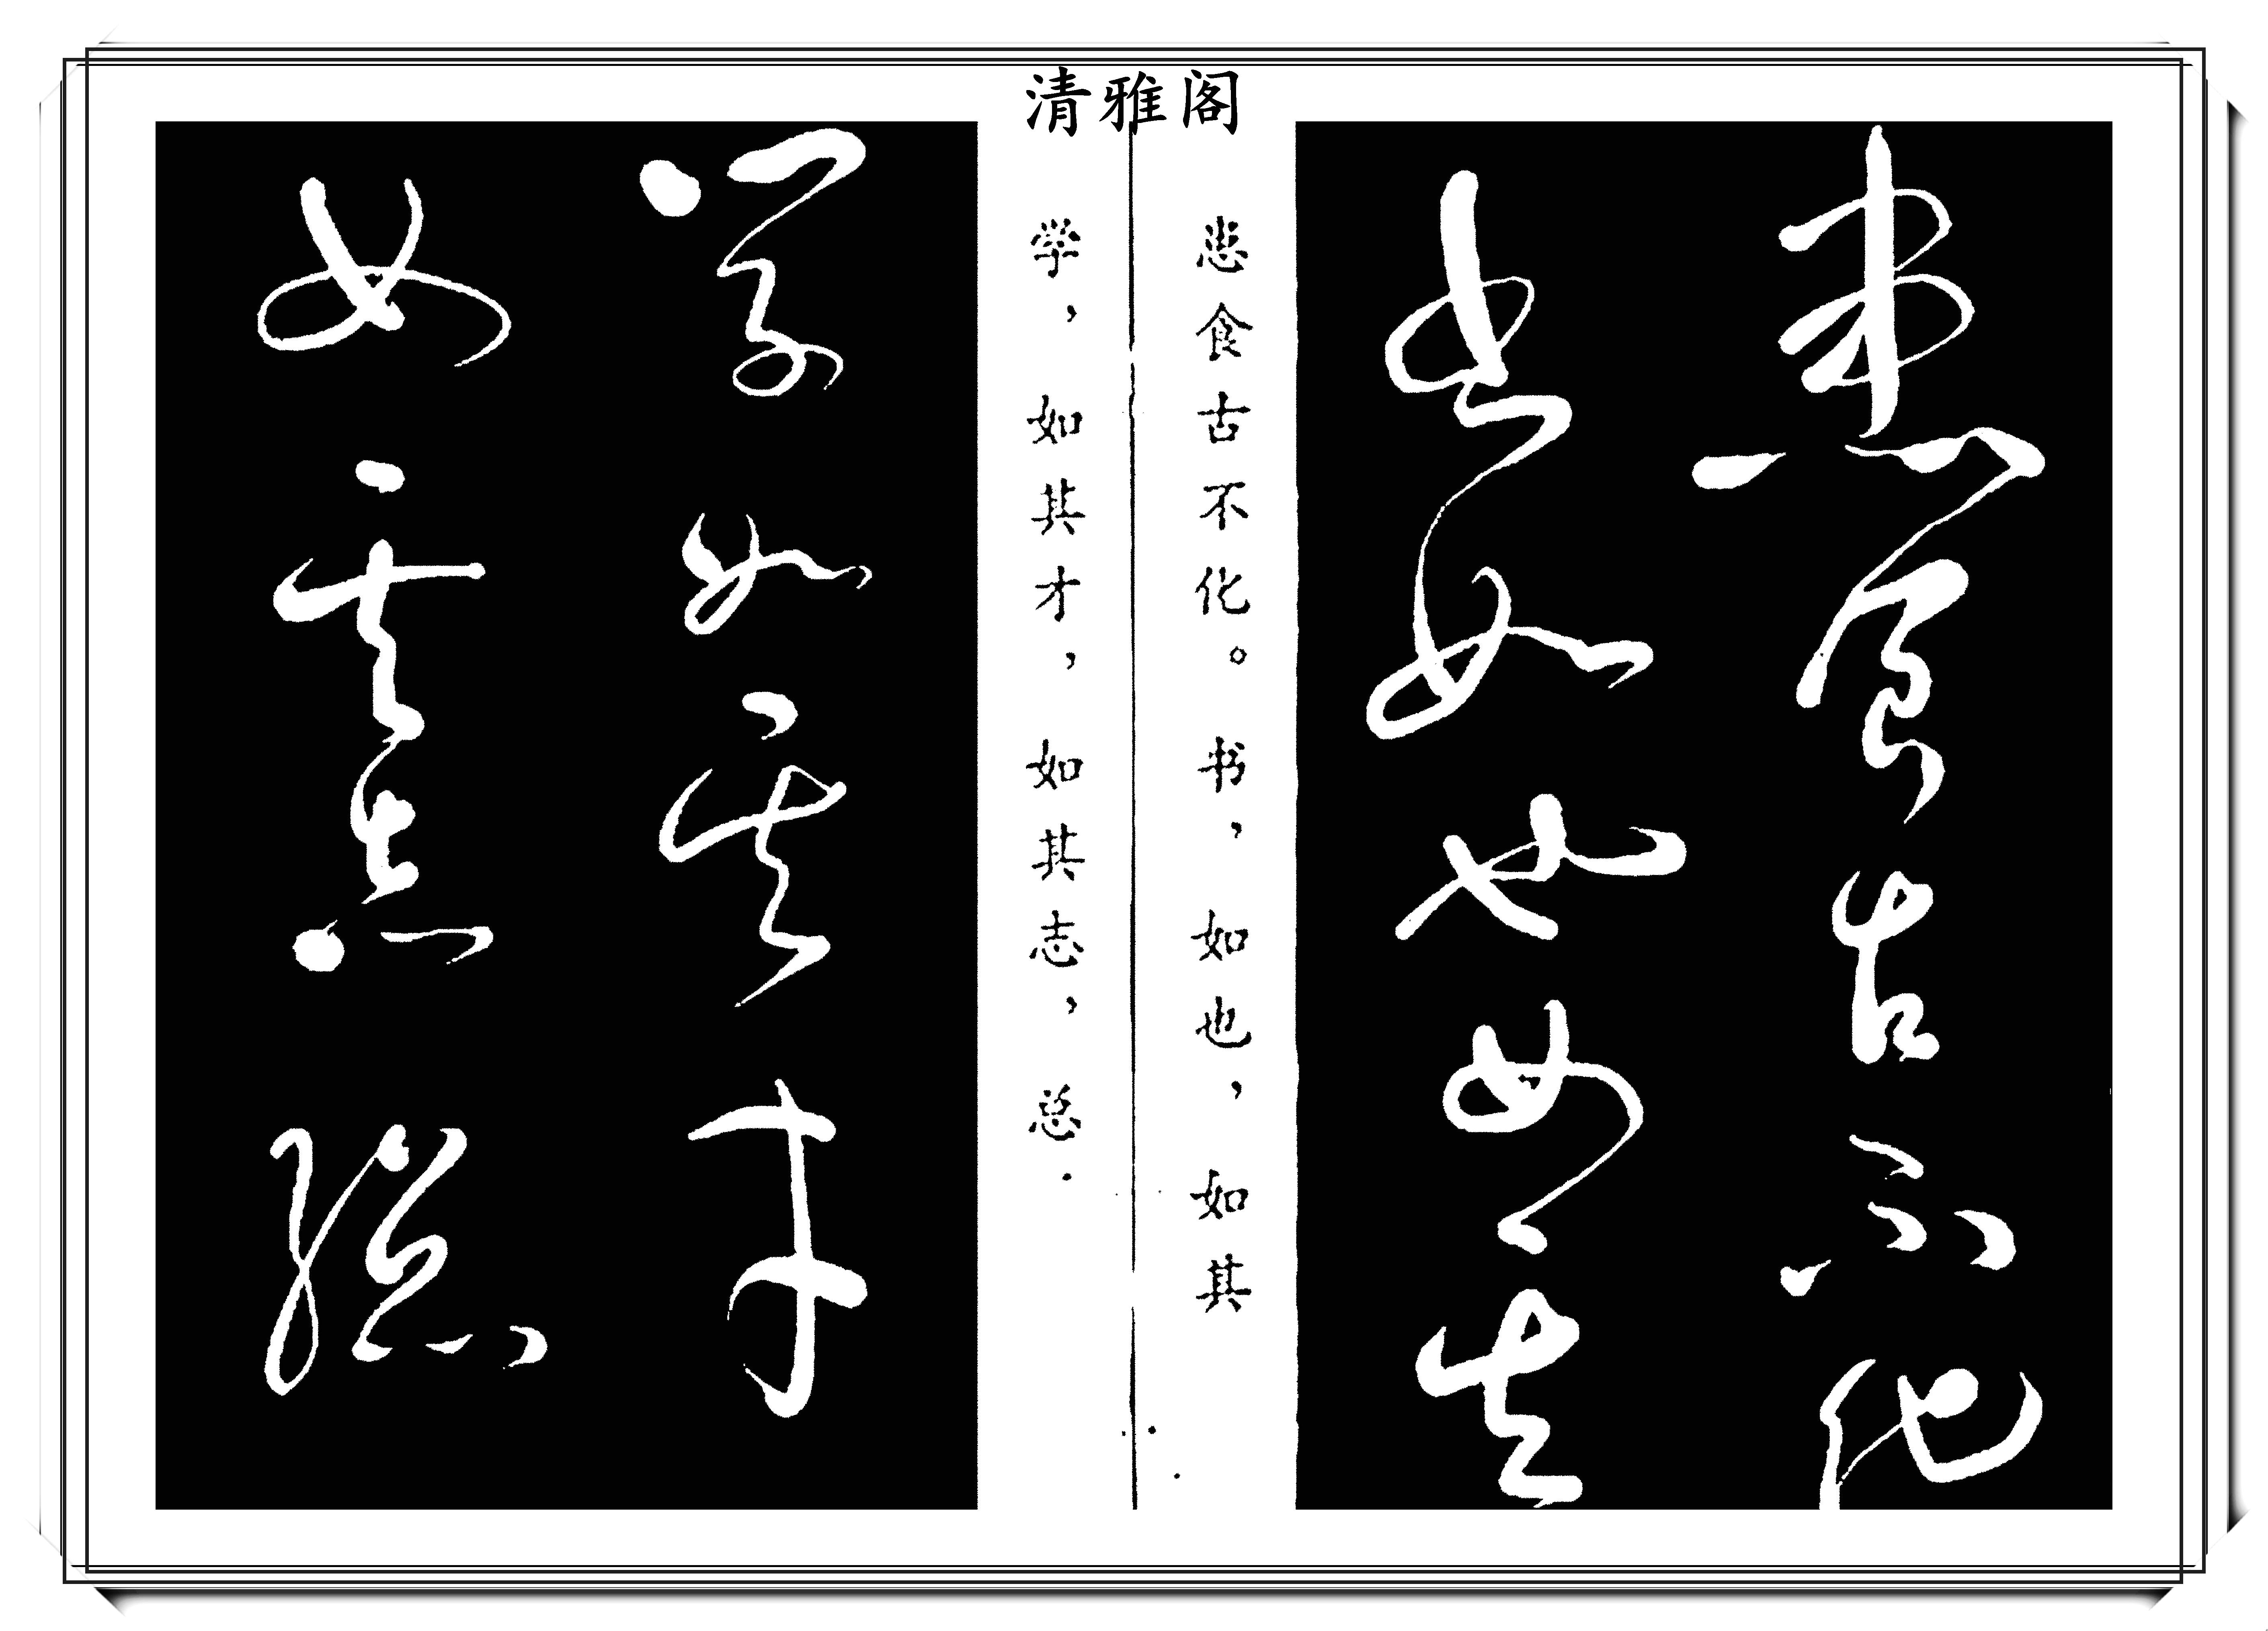 清雅阁
患食古不化
书如也如其
患食古不化。书，如也，如其
学，如其才，如其志，总
学如其才
如其志总